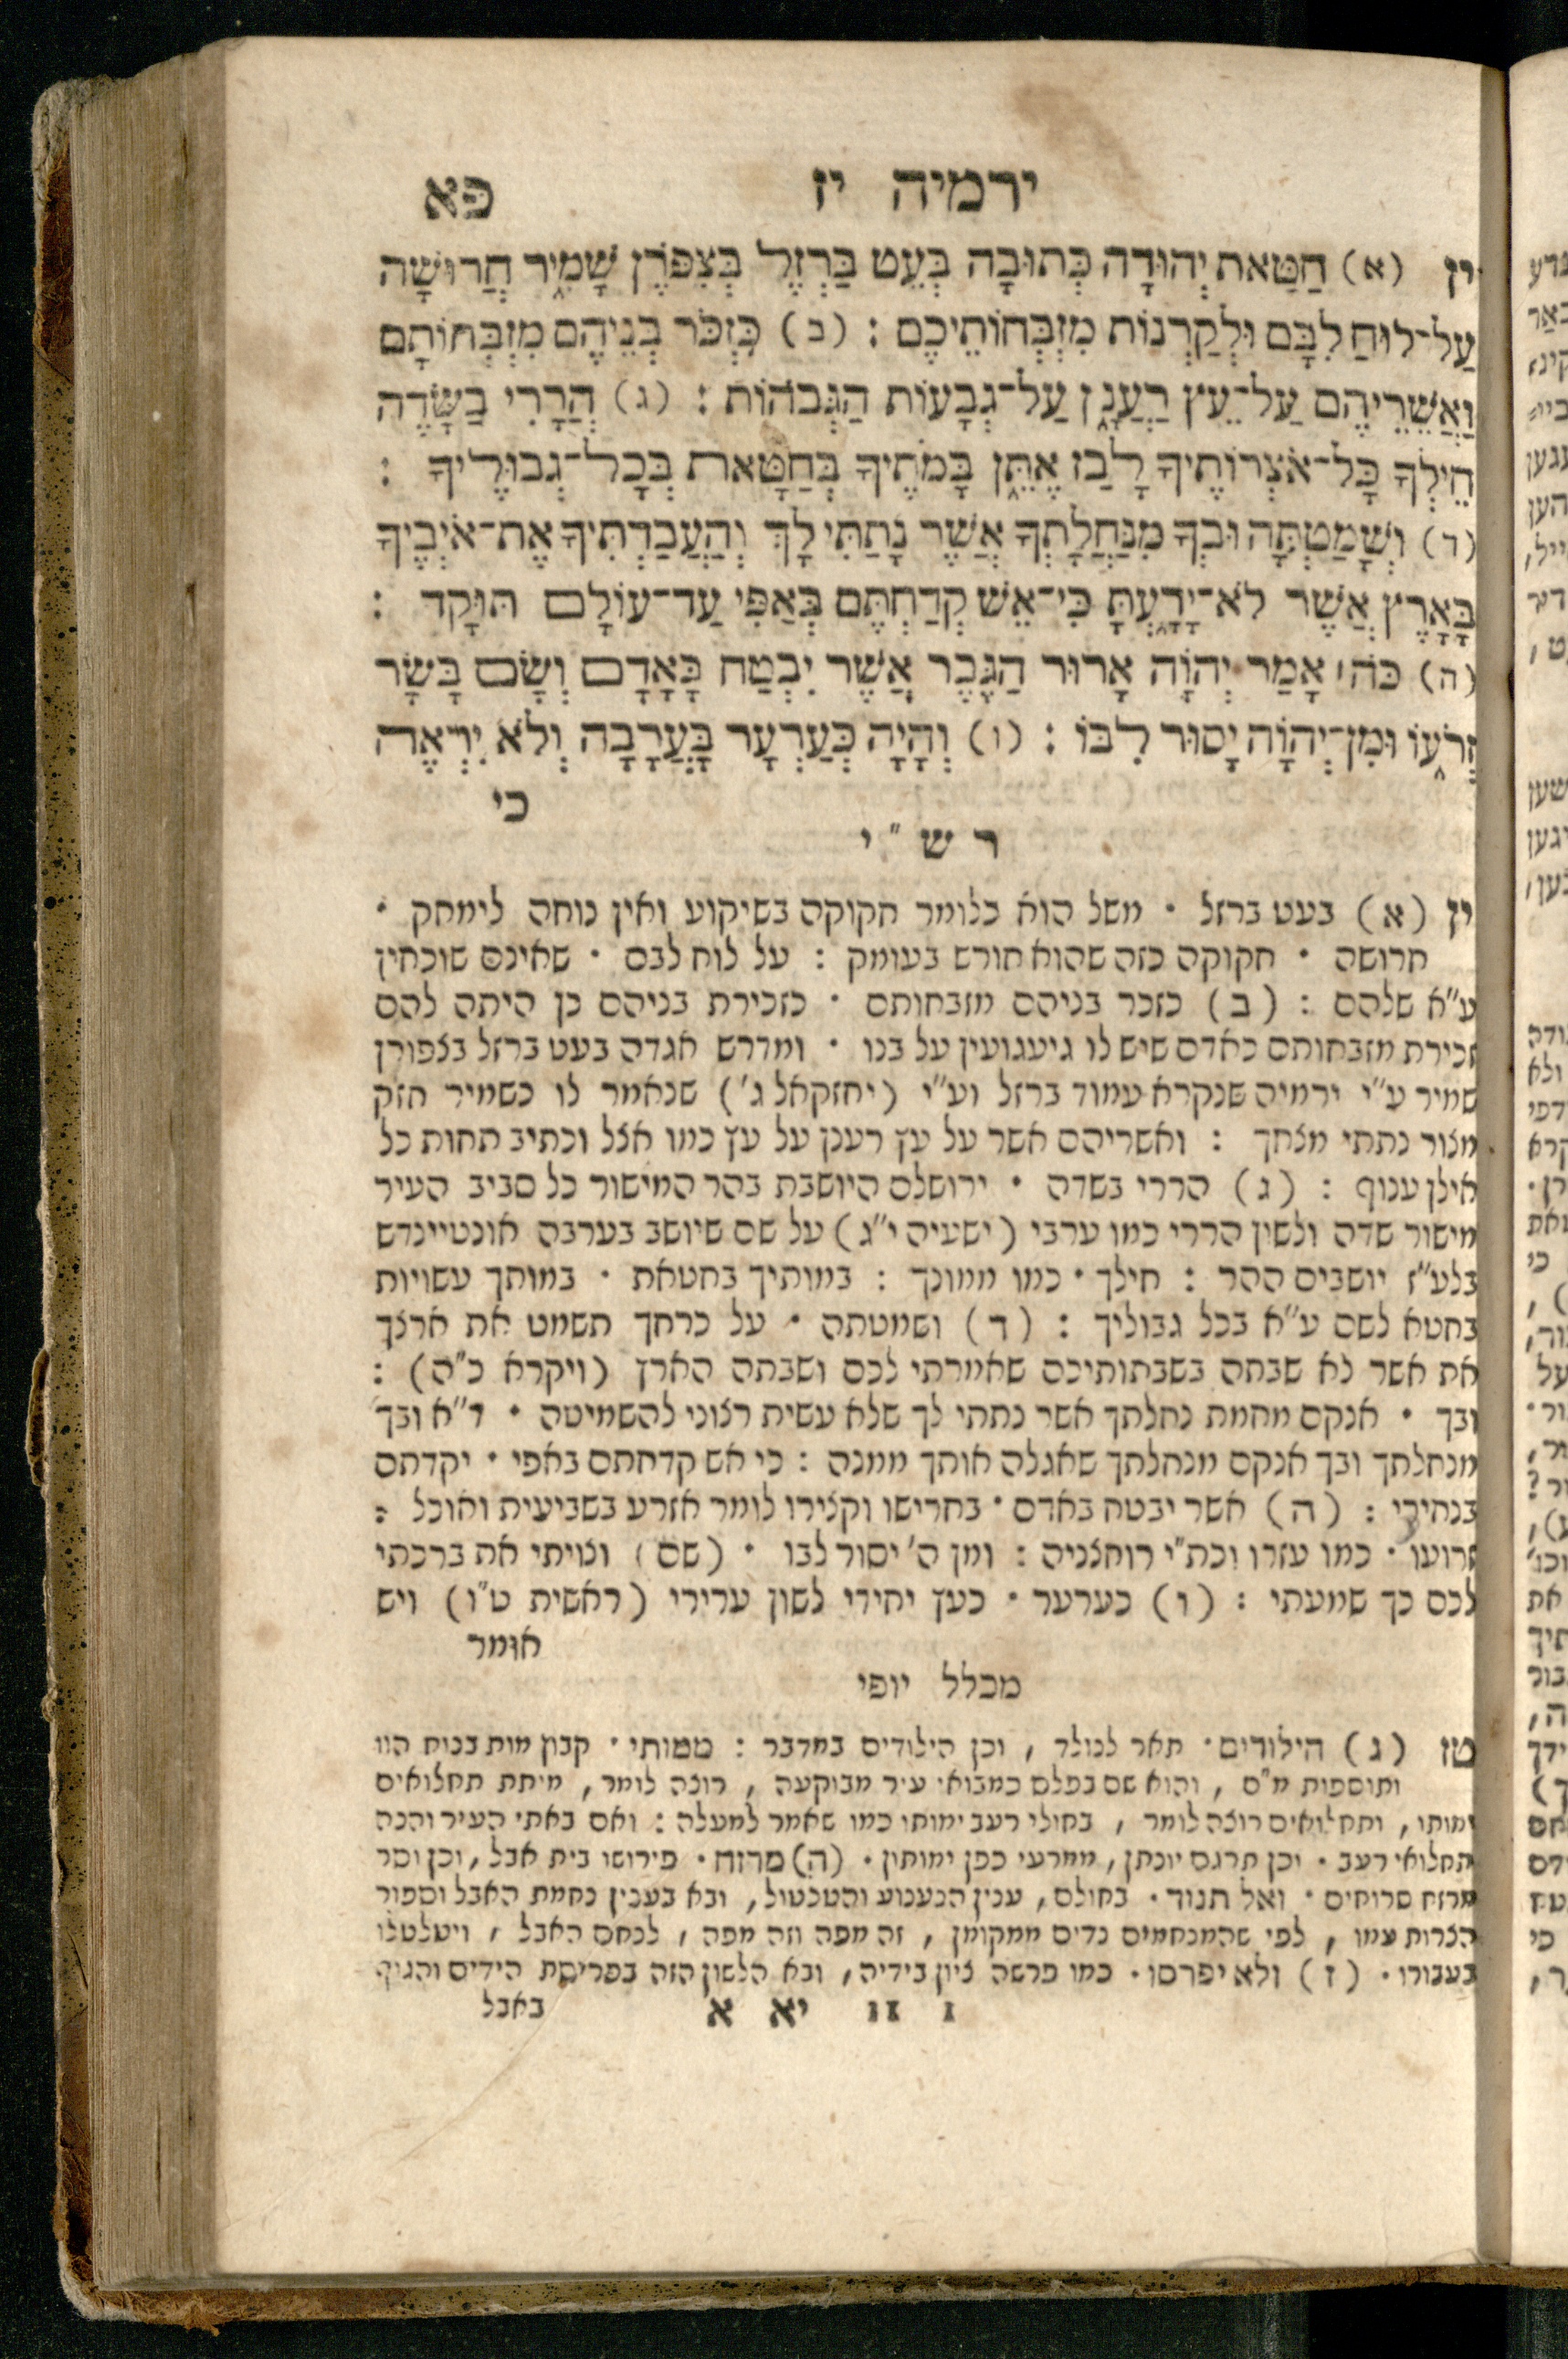 ירמיה יז פא
יז (א) חַטַּאת יְהוּדָה כְּתוּבָה בְּעֵט בַּרְזֶל בְּצִפֹּרֶן שָׁמִיר חֲרוּשָׁה
עַל־לוּחַ לִבָּם וּלְקַרְנוֹת מִזְבְּחוֹתֵיכֶם : (ב) כִּזְכֹּר בְּנֵיהֶם מִזְבְּחוֹתָם
וַאֲשֵׁרֵיהֶם עַל־עֵץ רַעֲנָן עַל־גְבָעוֹת הַגְּבֹהוֹת : (ג) הֲרָרִי בַּשָּׂדֶה
חֵילְךָ כָל־אֹצְרוֹתֶיךָ לָבַז אֶתֵּן בָּמֹתֶיךָ בְּחַטָּאת בְּכָל־גְבוּלֶיךָ :
(ד) וְשָׁמַטְתָּה וּבְךָ מִנַּחֲלָתְךָ אֲשֶׁר נָתַתִּי לָךְ וְהַעֲבַדְתִּיךָ אֶת־אֹיְבֶיךָ
בָּאָרֶץ אֲשֶׁר לֹא־יָדָעְתָּ כִּי־אֵשׁ קְדַחְתֶּם בְּאַפִּי עַד־עוֹלָם תּוּקָד :
(ה) כֹּה ׀ אָמַר יְהוָֹה אָרוּר הַגֶּבֶר אֲשֶׁר יִבְטַח בָּאָדָם וְשָׂם בָּשָׂר
זְרֹעוֹ וּמִן־יְהוָֹה יָסוּר לִבּוֹ : (ו) וְהָיָה כְּעַרְעָר בָּעֲרָבָה וְלֹא יִרְאֶה
כי
רש״י
יז (א) בעט ברזל • משל הוא כלומר חקוקה בשיקוע ואין נוחה לימחק •
חרושה • חקוקה כזה שהוא חורש בעומק : על לוח לבם • שאינם שוכחין
ע״א שלהם : (ב) כזכר בניהם מזבחותם • כזכירת בניהם כן היתה להם
זכירת מזבחותם כאדם שיש לו גיעגועין על בנו • ומדרש אגדה בעט ברזל בצפורן
שמיר ע״י ירמיה שנקרא עמוד ברזל וע״י (יחזקאל ג׳) שנאמר לו כשמיר חזק
מצור נתתי מצחך : ואשריהם אשר על עץ רענן על עץ כמו אצל וכתיב תחות כל
אילן ענוף : (ג) הררי בשדה • ירושלם היושבת בהר המישור כל סביב העיר
מישור שדה ולשון הררי כמו ערבי (ישעיה י״ג) על שם שיושב בערבה אונטיינדש
בלע״ז יושבים ההר : חילך • כמו ממונך : במותיך בחטאת • במותך עשויות
בחטא לשם ע״א בכל גבוליך : (ד) ושמטתה • על כרחך תשמט את ארצך
את אשר לא שבתה בשבתותיכם שאמרתי לכם ושבתה הארץ (ויקרא כ״ה) :
ובך • אנקם מחמת נחלתך אשר נתתי לך שלא עשית רצוני להשמיטה • ד״א ובך
מנחלתך ובך אנקם מנחלתך שאגלה אותך ממנה : כי אש קדחתם באפי • יקדתם
בנחירי : (ה) אשר יבטח באדם • בחרישו וקצירו לומר אזרע בשביעית ואוכל :
זרועו • כמו עזרו וכת״י רוחצניה : ומן ה׳ יסור לבו • (שם) וצויתי את ברכתי
לכם כך שמעתי : (ו) כערער • כעץ יחידי לשון ערירי (ראשית ט״ו) ויש
אומר
מכלל יופי
טז (ג) הילודים • תאר לנולד , וכן הילודים במדבר : ממותי • קבוץ מות בנוח הוו
ותוספות מ״ם , והוא שם בפלס כמבואי עיר מבוקעה , רוצה לומר , מיתת תחלואים
ימותו , ותחלואים רוצה לומר , בחולי רעב ימותו כמו שאמר למעלה : ואם באתי העיר והנה
תחלואי רעב • וכן תרגם יונתן , ממרעי כפן ימותין • (ה) מרזח • פירושו בית אבל , וכן וסר
מרזח סרוחים • ואל תנוד • בחולם , ענין הנענוע והטלטול , ובא בענין נחמת האבל וספור
הצרות עמו , לפי שהמנחמים נדים ממקומן , זה מפה וזה מפה , לנחם האבל , ויטלטלו
בעבורו • (ז) ולא יפרסו • כמו פרשה ציון בידיה , ובא הלשון הזה בפריסת הידים והגיף
יא א באבל